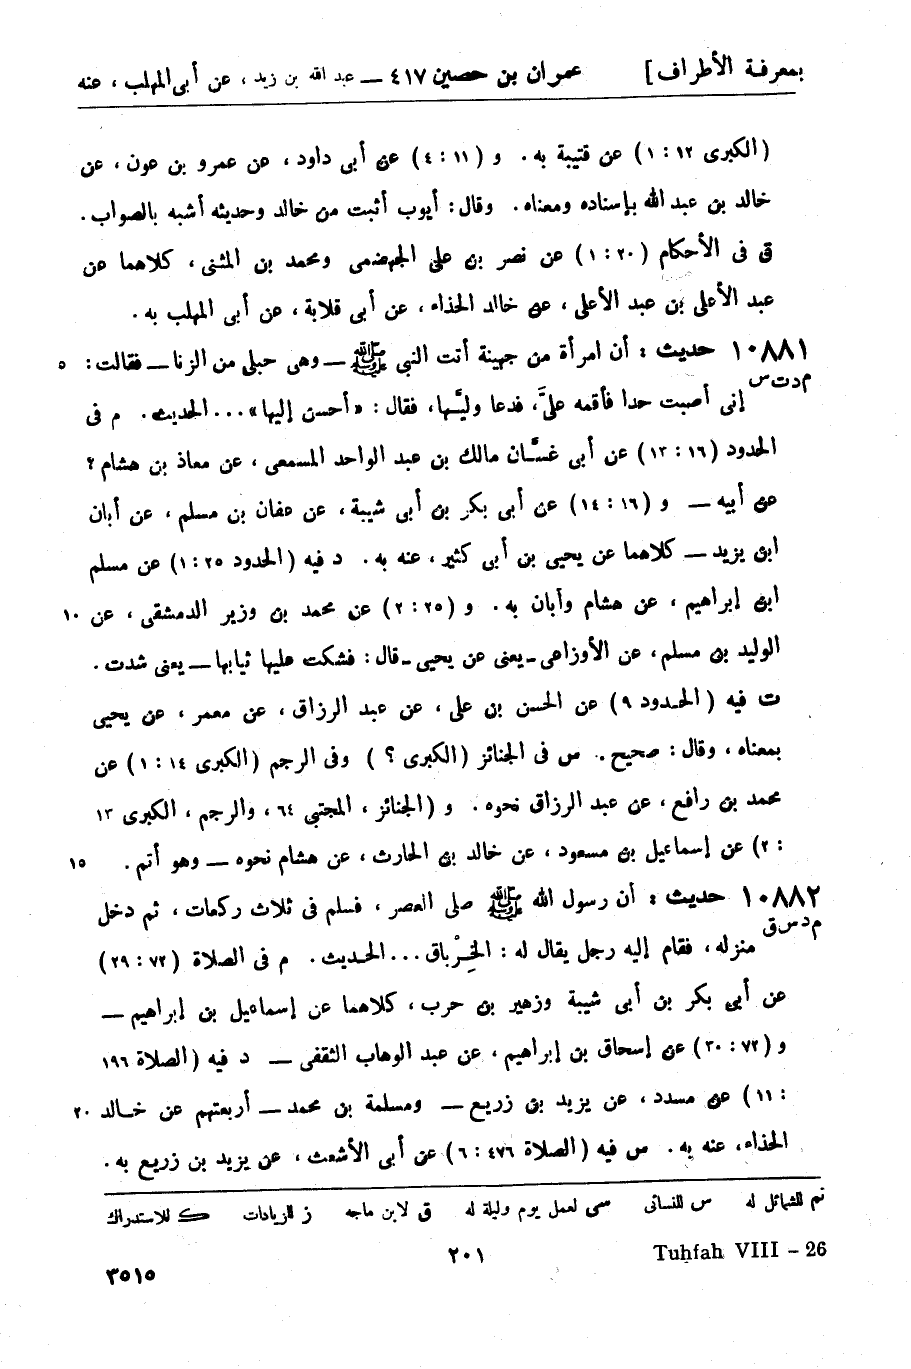 بمعرفة الأطراف] عمران بن حصين ٤١٧ — عبد الله بن زيد ، عن أبى المهلب ، عنه
(الكبرى ١٢ : ١) عن قتيبة به . و (١١ : ٤) عن أبى داود ، عن عمرو بن عون ، عن
خالد بن عبد الله بإسناده ومعناه . وقال : أيوب أثبت من خالد وحديثه أشبه بالصواب .
ق فى الأحكام (٢٠ : ١) عن نصر بن على الجهضمى ومحمد بن المثنى ، كلاهما عن
عبد الأعلى بن عبد الأعلى ، عن خالد الحذاء ، عن أبى قلابة ، عن أبى المهلب به .
١٠٨٨١ حديث : أن امرأة من جهينة أتت النبى ﷺ — وهى حبلى من الزنا — فقالت : ٥
م د ت س إنى أصبت حدا فأقمه علىَّ ، فدعا وليَّها ، فقال : «أحسن إليها» ... الحديث . م فى
الحدود (١٦ : ١٣) عن أبى غسَّان مالك بن عبد الواحد المسمعى ، عن معاذ بن هشام ؟
عن أبيه — و (١٦ : ١٤) عن أبى بكر بن أبى شيبة ، عن عفان بن مسلم ، عن أبان
ابن يزيد — كلاهما عن يحيى بن أبى كثير ، عنه به . د فيه (الحدود ٢٥ : ١) عن مسلم
ابن إبراهيم ، عن هشام وأبان به . و (٢٥ : ٢) عن محمد بن وزير الدمشقى ، عن ١٠
الوليد بن مسلم ، عن الأوزاعى - يعنى عن يحيى - قال : فشكت عليها ثيابها — يعنى شدت .
ت فيه (الحدود ٩) عن الحسن بن على ، عن عبد الرزاق ، عن معمر ، عن يحيى
بمعناه ، وقال : صحيح . س فى الجنائز (الكبرى ؟ ) وفى الرجم (الكبرى ١٤ : ١) عن
محمد بن رافع ، عن عبد الرزاق نحوه . و (الجنائز ، المجتبى ٦٤ ، والرجم ، الكبرى ١٣
: ٢) عن إسماعيل بن مسعود ، عن خالد بن الحارث ، عن هشام نحوه — وهو أتم . ١٥
١٠٨٨٢ حديث : أن رسول الله ﷺ صلى العصر ، فسلم فى ثلاث ركعات ، ثم دخل
م د س ق منزله ، فقام إليه رجل يقال له : الخِرْباق ... الحديث . م فى الصلاة (٧٢ : ٢٩)
عن أبى بكر بن أبى شيبة وزهير بن حرب ، كلاهما عن إسماعيل بن إبراهيم —
و (٧٢ : ٣٠) عن إسحاق بن إبراهيم ، عن عبد الوهاب الثقفى — د فيه (الصلاة ١٩٦
: ١١) عن مسدد ، عن يزيد بن زريع — ومسلمة بن محمد — أربعتهم عن خالد ٢٠
الحذاء ، عنه به . س فيه (الصلاة ٤٧٦ : ٦) عن أبى الأشعث ، عن يزيد بن زريع به .
تم للشمائل له س للنسائى سى لعمل يوم وليلة له ق لابن ماجه ز للزيادات ك للاستدراك
Tuḥfah VIII – 26 ٢٠١
٣٥١٥